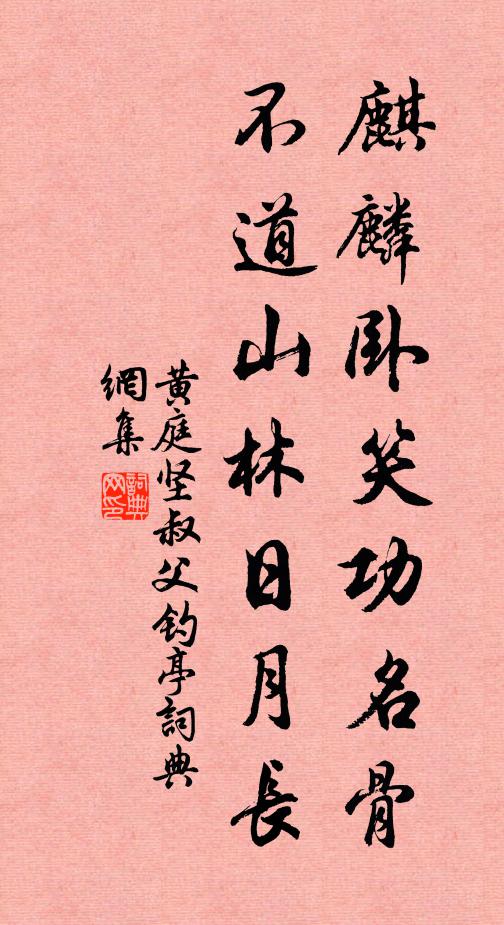 麒麟卧笑功名骨
不道山林日月長
黄庭坚叔父钓亭詞典
網集
詞典
网印